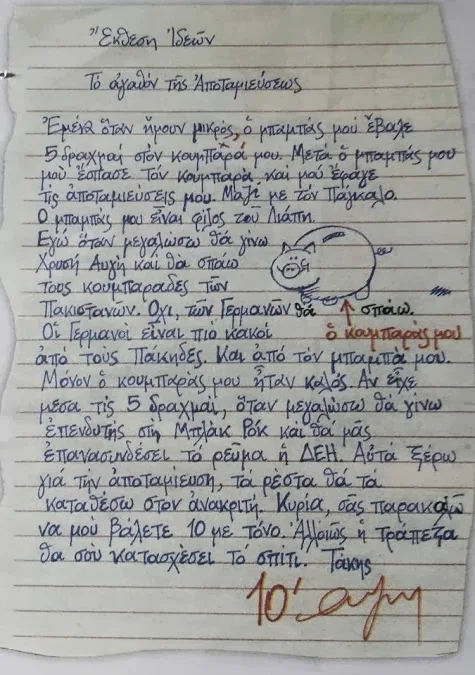 Ἔκθεση Ἰδεῶν
Τό ἀγαθόν τῆς Ἀποταμιεύσεως
Ἐμένα ὅταν ἤμουν μικρός, ὁ μπαμπάς μοῦ ἔβαλε
5 δραχμαί στόν κουμπαρᾶ μου. Μετά ὁ μπαμπάς μου
μοῦ ἔσπασε τον κουμπαρᾶ καί μοῦ ἔφαγε
τίς ἀποταμιεύσεις μου. Μαζί με τόν Πάγκαλο.
Ο μπαμπάς μου εἶναι φίλος τοῦ Λιάπη.
Εγώ ὅταν μεγαλώσω θά γίνω
Χρυσή Αυγή καί θά σπάω
τους κουμπαράδες τῶν
Πακιστανῶν. Οχι, τῶν Γερμανῶν θά σπάω.
Οἱ Γερμανοί εἶναι πιό κακοί
ὁ κουμπαρᾶς μου
ἀπό τους Πάκηδες. Και ἀπό τόν μπαμπά μου.
Μόνον ὁ κουμπαρᾶς μου ἦταν καλός. Αν εἶχε
μέσα τίς 5 δραχμαί, ὅταν μεγαλώσω θά γίνω
ἐπενδυτής στη Μπλάκ Ρόκ καί θά μᾶς
ἐπανασυνδέσει τό ρεῦμα ἡ ΔΕΗ. Αὐτά ξέρω
γιά τήν ἀποταμίευση, τά ρέστα θά τά
καταθέσω στόν ἀνακριτή. Κυρία, σᾶς παρακαλῶ
να μοῦ βάλετε 10 με τόνο. Ἀλλοιῶς ἡ τράπεζα
θα σοῦ κατασχέσει τό σπίτι. Τάκης
10'